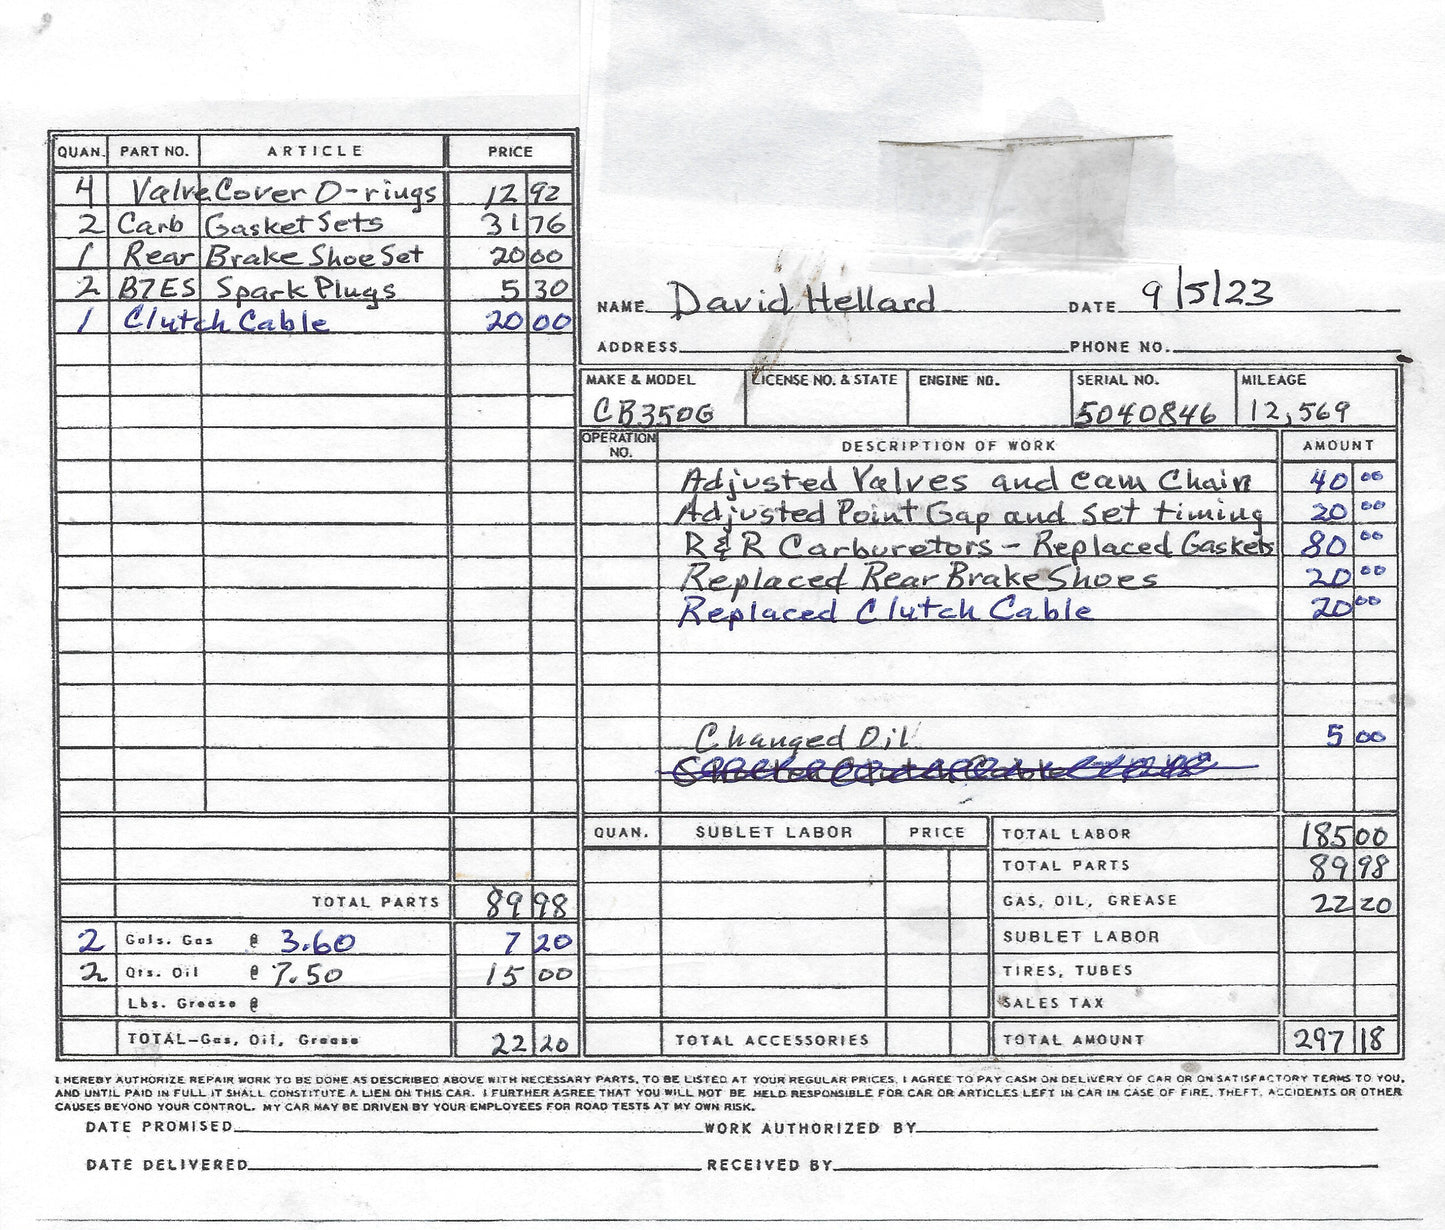 QUAN. PART NO. ARTICLE PRICE
4 Valve Cover O-rings 12 92
2 Carb Gasket Sets 31 76
1 Rear Brake Shoe Set 20 00
2 B7ES Spark Plugs 5 30
1 Clutch Cable 20 00
TOTAL PARTS 89 98
2 Gals. Gas @ 3.60 7 20
2 Qts. Oil @ 7.50 15 00
Lbs. Grease @
TOTAL-Gas, Oil, Grease 22 20
NAME David Hellard DATE 9/5/23
ADDRESS PHONE NO.
MAKE & MODEL LICENSE NO. & STATE ENGINE NO. SERIAL NO. MILEAGE
CB350G 5040846 12,569
OPERATION NO. DESCRIPTION OF WORK AMOUNT
Adjusted Valves and Cam Chain 40 00
Adjusted Point Gap and set timing 20 00
R & R Carburetors - Replaced Gaskets 80 00
Replaced Rear Brake Shoes 20 00
Replaced Clutch Cable 20 00
Changed Oil 5 00
QUAN. SUBLET LABOR PRICE
TOTAL ACCESSORIES
TOTAL LABOR 185 00
TOTAL PARTS 89 98
GAS, OIL, GREASE 22 20
SUBLET LABOR
TIRES, TUBES
SALES TAX
TOTAL AMOUNT 297 18
I HEREBY AUTHORIZE REPAIR WORK TO BE DONE AS DESCRIBED ABOVE WITH NECESSARY PARTS, TO BE LISTED AT YOUR REGULAR PRICES. I AGREE TO PAY CASH ON DELIVERY OF CAR OR ON SATISFACTORY TERMS TO YOU,
AND UNTIL PAID IN FULL IT SHALL CONSTITUTE A LIEN ON THIS CAR. I FURTHER AGREE THAT YOU WILL NOT BE HELD RESPONSIBLE FOR CAR OR ARTICLES LEFT IN CAR IN CASE OF FIRE, THEFT, ACCIDENTS OR OTHER
CAUSES BEYOND YOUR CONTROL. MY CAR MAY BE DRIVEN BY YOUR EMPLOYEES FOR ROAD TESTS AT MY OWN RISK.
DATE PROMISED WORK AUTHORIZED BY
DATE DELIVERED RECEIVED BY